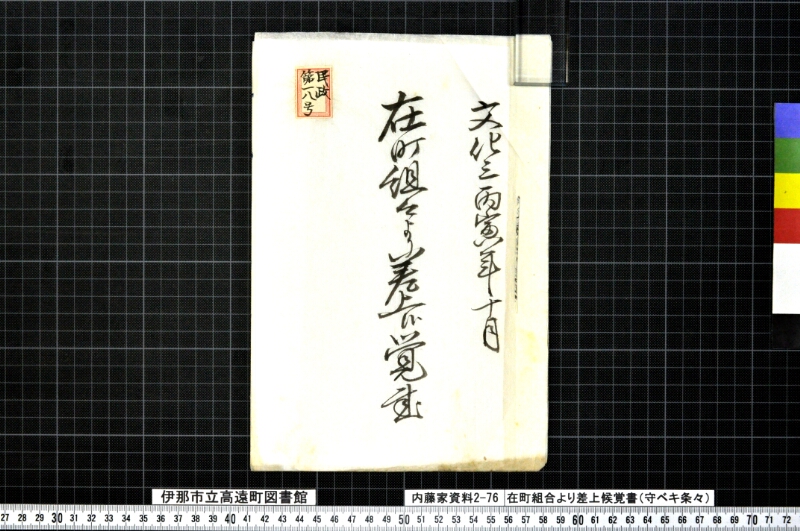 文化三丙寅年十月
在町組々より差上候覚書
民政
第一八号
伊那市立高遠町図書館
内藤家資料2-76 在町組合より差上候覚書(守ベキ条々)
27 28 29 30 31 32 33 34 35 36 37 38 39 40 41 42 43 44 45 46 47 48 49 50 51 52 53 54 55 56 57 58 59 60 61 62 63 64 65 66 67 68 69 70 71 72